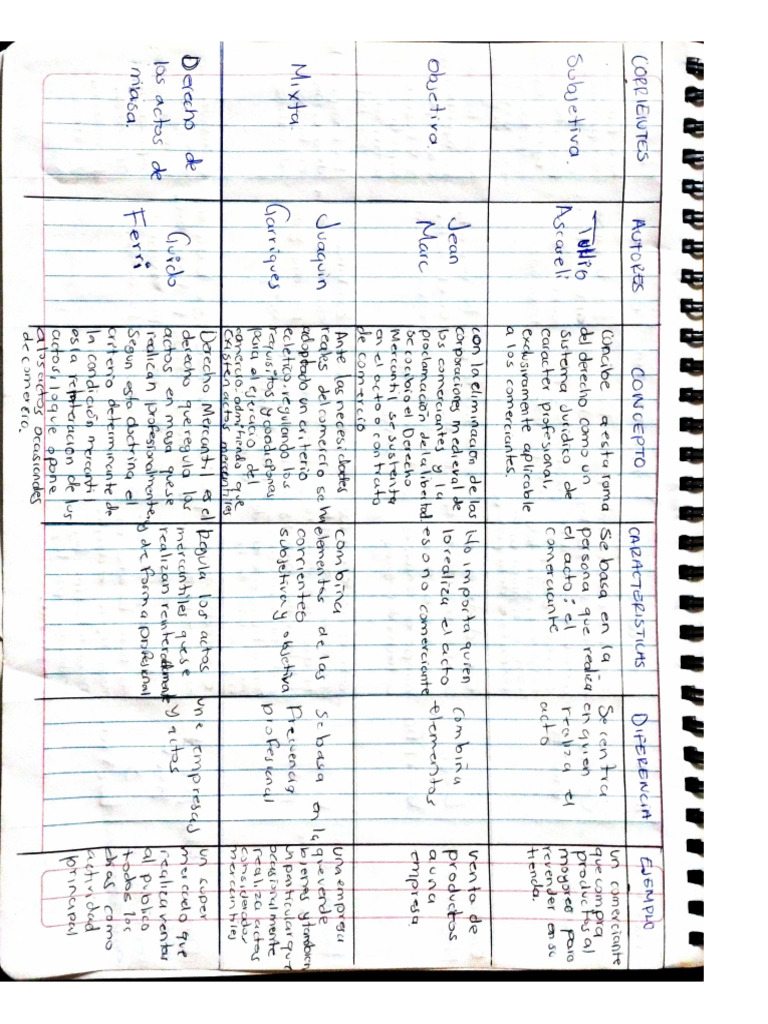 CORRIENTES
AUTORES
CONCEPTO
CARACTERISTICAS
DIFERENCIA
EJEMPLO
Subjetiva.
Tullio
Ascareli
Concibe a esta rama
del derecho como un
sistema Juridico de
caracter profesional,
exclusivamente aplicable
a los comerciantes.
Se basa en la
persona que realiza
el acto: el
comerciante
Se centra
en quien
realiza el
acto
un comerciante
que compra
productos al
mayoreo para
revender en su
tienda.
Objetiva.
Jean
Marc
con la eliminación de las
corporaciones medieval de
los comerciantes y la
proclamación de la libertad
se cocibio el Derecho
Mercantil se sustenta
en el acto o contrato
de comercio
No importa quien
lo realiza el acto
es o no comerciante
Combina
elementos
venta de
productos
a una
empresa.
Mixta.
Juaquin
Garrigues
Ante las necesidades
reales del comercio se ha
adoptado un criterio
ecletico, regulando los
requisitos y condiciones
para el ejercicio del
comercio, admitiendo que
existen actos mercantiles
combina
elementos de las
corrientes
subjetiva y objetiva
Se basa en la
frecuencia
profesional
una empresa
que vende
bienes y tambien
un particular que
ocasionalmente
realiza actos
considerados
mercantiles
Derecho de
los actos de
masa.
Guido
Ferri
Derecho Mercantil es el
derecho que regula los
actos en masa que se
realizan profesionalmente,
Segun esta doctrina el
criterio determinante de
la condición mercantil
es la reiteracion de los
actos, lo que opone
a los actos ocasionales
de comercio.
Regula los actos
mercantiles que se
realizan reiteradamente
y de forma profesional
une empresas
y actos
un super
mercado que
realiza ventas
al publico
todos los
dias como
actividad
principal